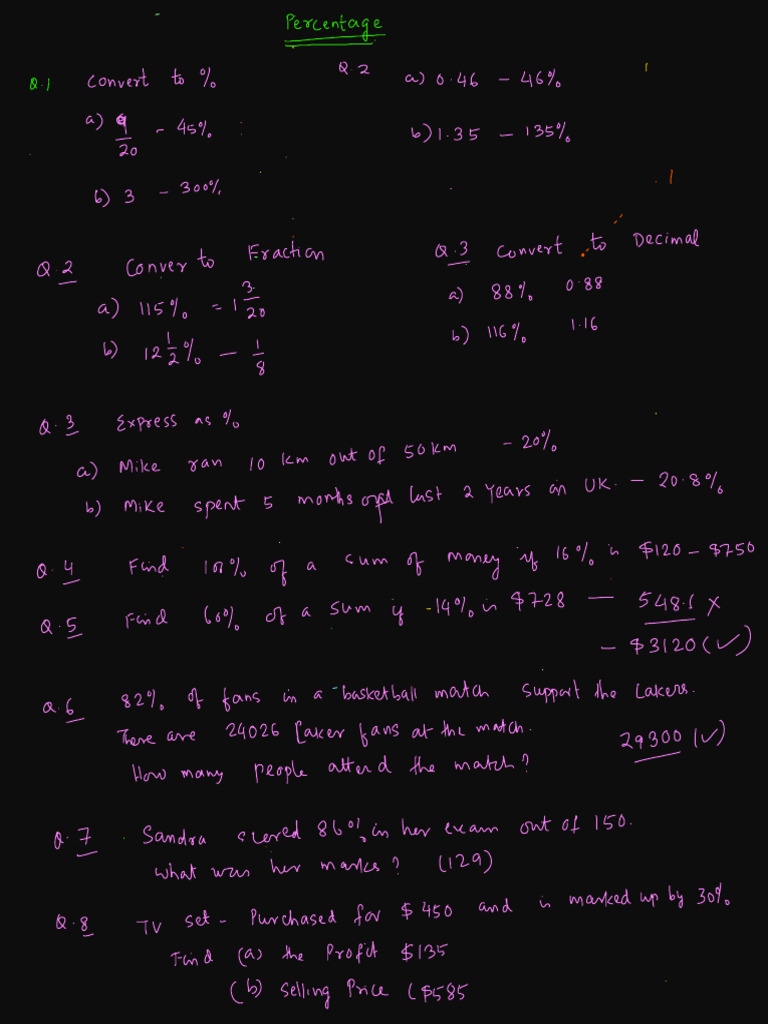 Percentage
Q.1 Convert to %
a) 9/20 - 45%
b) 3 - 300%
Q.2 a) 0.46 - 46%
b) 1.35 - 135%
Q.2 Conver to Fraction
a) 115% = 1 3/20
b) 12 1/2 % - 1/8
Q.3 Convert to Decimal
a) 88% 0.88
b) 116% 1.16
Q.3 Express as %
a) Mike ran 10 km out of 50 km - 20%
b) Mike spent 5 months of last 2 years in UK. - 20.8%
Q.4 Find 100% of a sum of money if 16% is $120 - $750
Q.5 Find 60% of a sum if 14% is $728 - 548.1 x
- $3120 (✓)
Q.6 82% of fans in a basketball match support the Lakers.
There are 24026 Laker fans at the match.
How many people attend the match? 29300 (✓)
Q.7 Sandra scored 86% in her exam out of 150.
What was her marks? (129)
Q.8 TV set - Purchased for $450 and is marked up by 30%
Find (a) the Profit $135
(b) Selling Price ($585